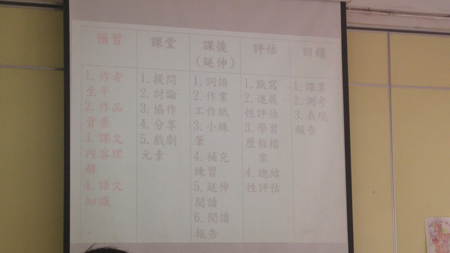 預習
課堂
課後
(延伸)
評估
回饋
1. 作者
生平
2. 作品
背景
3. 課文
內容理
解
4. 語文
知識
1. 提問
2. 討論
3. 協作
4. 分享
5. 戲劇
元素
1. 詞語
2. 作業
工作紙
3. 小練
筆
4. 補充
練習
5. 延伸
閱讀
6. 閱讀
報告
1. 默寫
2. 進展
性評估
3. 學習
歷程檔
案
4. 總結
性評估
1. 課業
2. 測考
3. 表現
報告